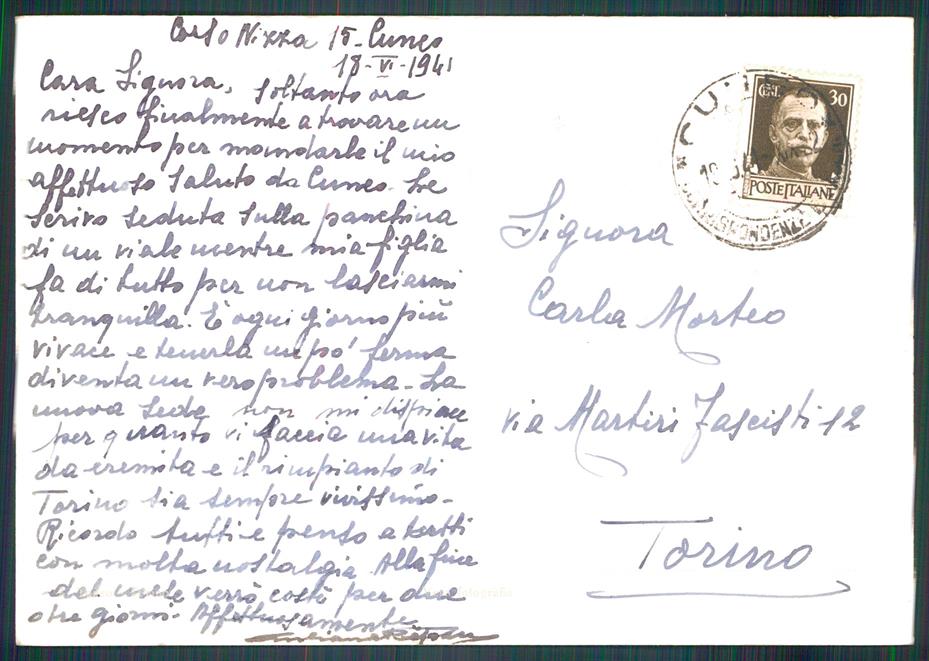 Corso Nizza 15 - Cuneo
18 - VI - 1941
Cara Signora, soltanto ora
riesco finalmente a trovare un
momento per mandarle il mio
affettuoso saluto da Cuneo. Le
scrivo seduta sulla panchina
di un viale mentre mia figlia
fa di tutto per non lasciarmi
tranquilla. È ogni giorno più
vivace e tenerla un po' ferma
diventa un vero problema - La
nuova sede non mi dispiace
per quanto vi faccia una vita
da eremita e il rimpianto di
Torino sia sempre vivissimo -
Ricordo tutti e penso a tutti
con molta nostalgia. Alla fine
del mese verrò costì per due
o tre giorni - Affettuosamente
Signora
Carla Morteo
via Martiri Fascisti 12
Torino
CENT. 30
POSTE ITALIANE